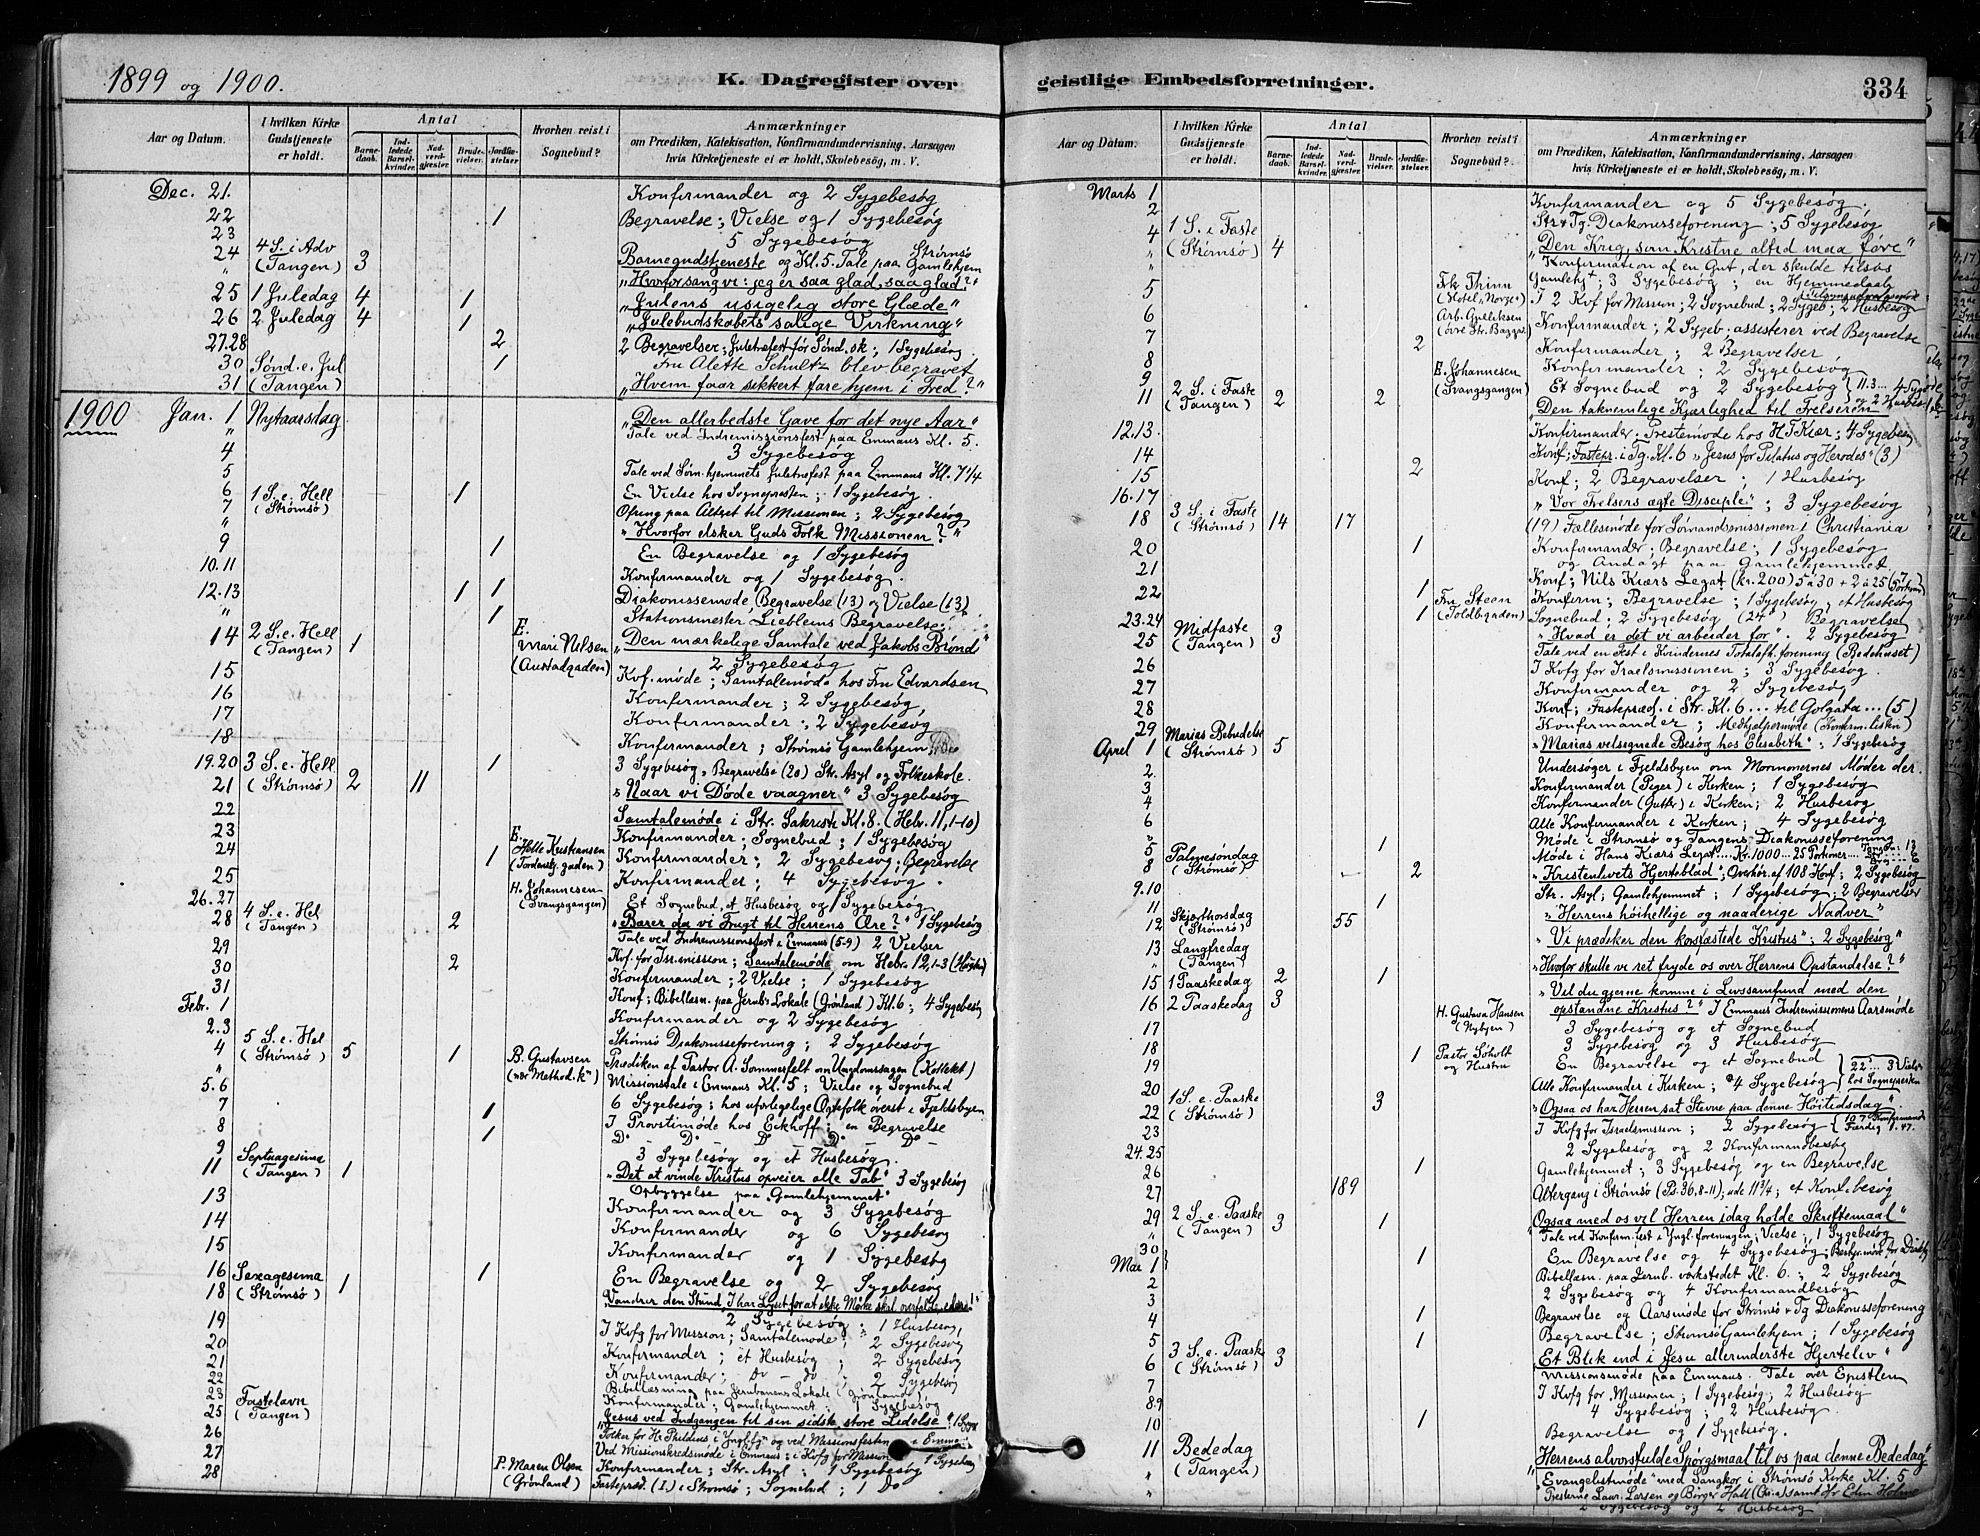 1899 og 1900.
K. Dagregister over
Aar og Datum.
I hvilken Kirke Gudstjeneste er holdt.
Antal
Barnedaab.
Indledede Barselkvinder.
Nadverdgjester.
Brudevielser.
Jordfæstelser.
Hvorhen reist i Sognebud?
Anmærkninger
om Prædiken, Katekisation, Konfirmandundervisning, Aarsagen
hvis Kirketjeneste ei er holdt, Skolebesøg, m. V.
Dec. 21. Konfirmander og 2 Sygebesøg
22 1 Begravelse; Vielse og 1 Sygebesøg
23 5 Sygebesøg
24 4 S. i Adv (Tangen) 3 Barnegudstjeneste og Kl. 5. Tale paa Strømsø Gamlehjem
" „Hvorfor sang vi: jeg er saa glad, saa glad?"
25 1 Juledag 4 1 „Julens usigelig store Glæde"
26 2 Juledag 4 1 „Julebudskabets salige Virkning"
27.28 2 2 Begravelser; Juletrefest for Sønd.sk; 1 Sygebesøg
30 Sønd. e. Jul 1 Fru Alette Schultz blev begravet
31 (Tangen) „Hvem faar sikkert fare hjem i Fred?"
1900 Jan. 1 Nytaarsdag „Den allerbedste Gave for det nye Aar"
" Tale ved Indremissionsfest paa Emmaus Kl. 5.
4 3 Sygebesøg
5 Tale ved Søm.hjemmets Juletrefest paa Emmaus Kl. 7 1/4
6 1 En Vielse hos Sognepresten; 1 Sygebesøg.
7 1 S. e. Hell (Strømsø) Ofring paa Altret til Missionen; 2 Sygebesøg
" „Hvorfor elsker Guds Folk Missionen?"
9 1 En Begravelse og 1 Sygebesøg
10.11 Konfirmander og 1 Sygebesøg.
12.13 1 1 Diakonissemøde, Begravelse (13) og Vielse (13)
" 1 Stationsmester Lieblems Begravelse
14 2 S. e. Hell (Tangen) 1 E. Mari Nilsen (Austadgaden) „Den mærkelige Samtale ved Jakobs Brønd"
15 2 Sygebesøg
Kvf. møde; Samtalemøde hos Fru Edvardsen
16 Konfirmander; 2 Sygebesøg,
17 Konfirmander; 2 Sygebesøg
18 Konfirmander; Strømsø Gamlehjem
19.20 1 3 Sygebesøg, Begravelse (20) Str. Asyl og Folkeskole.
21 3 S. e. Hell (Strømsø) 2 11 „Naar vi Døde vaagner" 3 Sygebesøg
22 Samtalemøde i Str. Sakristi Kl. 8. (Hebr. 11, 1-10)
23 Konfirmander; Sognebud; 1 Sygebesøg
24 1 Konfirmander; 2 Sygebesøg; Begravelse
25 Konfirmander; 4 Sygebesøg.
26.27 H. Johannesen (Svangsgangen) Et Sognebud, et Husbesøg og 1 Sygebesøg
28 4 S. e. Hel (Tangen) 2 „Bærer du vi Frugt til Herrens Ære?" 1 Sygebesøg
Tale ved Indremissionsfest i Emmaus (5-9) 2 Vielser
29 Kvf. for Isr.mission; Samtalemøde om Hebr. 12, 1-3
30 2 Konfirmander; 2 Vielse; 1 Sygebesøg
31 Konf; Bibellæsn. paa Jernb. Lokale (Grønland) Kl. 6; 4 Sygebesøg
Febr. 1 Konfirmander og 2 Sygebesøg
2.3 Strømsø Diakonisseforening; 2 Sygebesøg
4 5 S. e. Hel (Strømsø) 5 1 B. Gustavsen (nær Method. k") Prædiken af Pastor A. Sommerfelt om Ungdomssagen (Kollekt)
" Missionstale i Emmaus Kl. 5; Vielse og Sognebud
5.6 6 Sygebesøg; hos uforligelige Ægtefolk øverst i Fjeldsbyen
7 1 I Provstemøde hos Eckhoff; en Begravelse
8 1 Do – Do – Do – Do – Do –
9 3 Sygebesøg og et Husbesøg.
11 Septuagesima (Tangen) 1 „Det at vinde Kristus opveier alle Tab" 3 Sygebesøg
Opbyggelse paa „Gamlehjemmet"
13 Konfirmander og 3 Sygebesøg
14 Konfirmander og 6 Sygebesøg
15 Konfirmander og 1 Sygebesøg
16 1 En Begravelse og 2 Sygebesøg
18 Sexagesima (Strømsø) 1 „Vandrer den Stund, I har Lyset for at ikke Mørke skal overfalde eder!"
19 2 Sygebesøg; 1 Husbesøg,
I Kvfg for Mission; Samtalemøde; 2 Sygebesøg
20 Konfirmander; et Husbesøg; 2 Sygebesøg
21 Konfirmander; do – do; 2 Sygebesøg
22 Bibellæsning paa Jernbanens Lokale (Grønland)
23 Konfirmander; Gamlehjemmet; 1 Sygebesøg
25 Fastelavn (Tangen) „Jesus ved Indgangen til sin sidste store Lidelse"
26
27 Ved Missionskredsmøde i Emmaus; i Kvfg for Mission 1 Sygebesøg
28 P. Maren Olsen (Grønland) Konfirmander; Str. Asyl; 1 Sygebesøg
Fastepræd. (I.) i Strømsø; Sognebud; 1 Do
geistlige Embedsforretninger.
334
Aar og Datum.
I hvilken Kirke Gudstjeneste er holdt.
Antal
Barnedaab.
Indledede Barselkvinder.
Nadverdgjester.
Brudevielser.
Jordfæstelser.
Hvorhen reist i Sognebud?
Anmærkninger
om Prædiken, Katekisation, Konfirmandundervisning, Aarsagen
hvis Kirketjeneste ei er holdt, Skolebesøg, m. V.
Marts 1 Konfirmander og 5 Sygebesøg.
2 Str & Tg. Diakonisseforening; 5 Sygebesøg
4 1 S. i Faste (Strømsø) 4 „Den Krig, som Kristne altid maa føre"
" Konfirmation af en Gut, der skulde tilsøs
" Gamlehj; 3 Sygebesøg; en Hjemmedaab
5 (Hotel „Norge") I 2 Kvf for Mission; 2 Sognebud; 2 Sygeb; 2 Husbesøg
6 Konfirmander; 2 Sygeb. assisterer ved Begravelse
7 2 Konfirmander; 2 Begravelser
8 Konfirmander; 2 Sygebesøg
9 E. Johannesen (Svangsgangen) Et Sognebud og 2 Sygebesøg
11 2 S. i Faste (Tangen) 2 2 „Den taknemlige Kjærlighed til Frelseren"
12.13. Konfirmander; Prestemøde hos H. T. Kiær; 4 Sygebesøg
14 Konf; Fastepr. i Tg. Kl. 6 „Jesus for Pilatus og Herodes" (3)
15 2 Konf; 2 Begravelser; 1 Husbesøg
16.17 „Vor Frelsers ægte Disciple"; 3 Sygebesøg
18 3 S. i Faste (Strømsø) 14 17 (19) Fællesmøde for Sømandsmissionen i Christiania
20 1 Konfirmander; Begravelse; 1 Sygebesøg
21 og Andagt paa Gamlehjemmet
Konf; Nils Kiærs Legat (kr. 200) 5 à 30 + 2 à 25
22 1 Fru Steen (Toldbgaden) Konfirm; Begravelse; 1 Sygebesøg; et Husbesøg
23.24 1 Sognebud; 2 Sygebesøg (24) Begravelse
25 Midfaste (Tangen) 3 „Hvad er det vi arbeider for". 2 Sygebesøg
Tale ved en Fest i Kvindernes Totalafh. forening (Bedehuset)
26 I Kvfg for Israelsmissionen; 3 Sygebesøg.
27 Konfirmander og 2 Sygebesøg
28 Konf; Fastepræd. i Str. Kl. 6 ... til Golgata ... (5)
29 Konfirmander; Medhjelpermøde
April 1 Marias Bebudelse (Strømsø) 5 „Marias velsignede Besøg hos Elisabeth"; 1 Sygebesøg
2. Undersøger i Fjeldsbyen om Mormonernes Møder der.
3 Konfirmander (Piger) i Kirken; 1 Sygebesøg
4 Konfirmander (Gutter) i Kirken; 2 Husbesøg
6 Alle Konfirmander i Kirken; 4 Sygebesøg
" Møde i Strømsø og Tangens Diakonisseforening
5 1 Møde i Hans Kiærs Legat .... Kr. 1000 ... 25 Portioner
8 Palmesøndag (Strømsø) 2 „Kristenlivets Hjerteblad"; Overhør. af 108 Konf; 2 Sygebesøg
9.10 Str. Asyl; Gamlehjemmet; 1 Sygebesøg; 2 Begravelser
11 1
12 Skjærthorsdag (Strømsø) 55 „Herrens høihellige og naaderige Nadver"
13 Langfredag (Tangen) „Vi prædiker den korsfæstede Kristus"; 2 Sygebesøg
15 1 Paaskedag 2 1 „Hvorfor skulle vi ret fryde os over Herrens Opstandelse?"
16 2 Paaskedag 3 „Vil du gjerne komme i Livssamfund med den
opstandne Kristus?" I Emmaus Indremissionens Aarsmøde
17 H. Gustava Hansen (Nybyen) 3 Sygebesøg og et Sognebud
18 3 Sygebesøg og 3 Husbesøg
19 1 Pastor Søholt og Hustru En Begravelse og et Sognebud
20 Alle Konfirmander i Kirken; 4 Sygebesøg
22 1 S. e. Paaske (Strømsø) 3 „Ogsaa os har Herren sat Stevne paa denne Høitidsdag"
23 I Kvfg for Israelsmission; 2 Sygebesøg
24.25 2 Sygebesøg og 2 Konfirmandbesøg
26 1 Gamlehjemmet; 3 Sygebesøg og en Begravelse
27 189 Altergang i Strømsø (Ps. 36, 8-11); ude 11 3/4; et Konf. besøg
29 2 S. e. Paaske (Tangen) 3 1 „Ogsaa med os vil Herren idag holde Skriftemaal"
" Tale ved Konfirm.fest i Yngl. foreningen; Vielse; 1 Sygebesøg
30 1 En Begravelse og 4 Sygebesøg
Mai 1 Bibellæsn. paa Jernb. værkstedet Kl. 6.; 2 Sygebesøg
2 2 Sygebesøg og 4 Konfirmandbesøg
3
4 1 Begravelse og Aarsmøde for Strømsø & Tg Diakonisseforening
5 1 Begravelse; Strømsø Gamlehjem; 1 Sygebesøg
6 3 S. e. Paaske (Strømsø) 3 „Et Blik ind i Jesu allerinderste Hjerteliv"
Missionsmøde paa Emmaus. Tale over Epistlen
7 I Kvfg for Missionen; 1 Sygebesøg; 2 Husbesøg
8.9 4 Sygebesøg; 2 Husbesøg.
10 1 Begravelse og 1 Sygebesøg.
11 Bededag (Tangen) „Herrens alvorsfulde Spørgsmaal til os paa denne Bededag"
" „Evangelistmøde" med Sangkor i Strømsø Kirke Kl. 5
" Presterne Laur. Larsen og Børger Hall
2 Sygebesøg og 2 Husbesøg